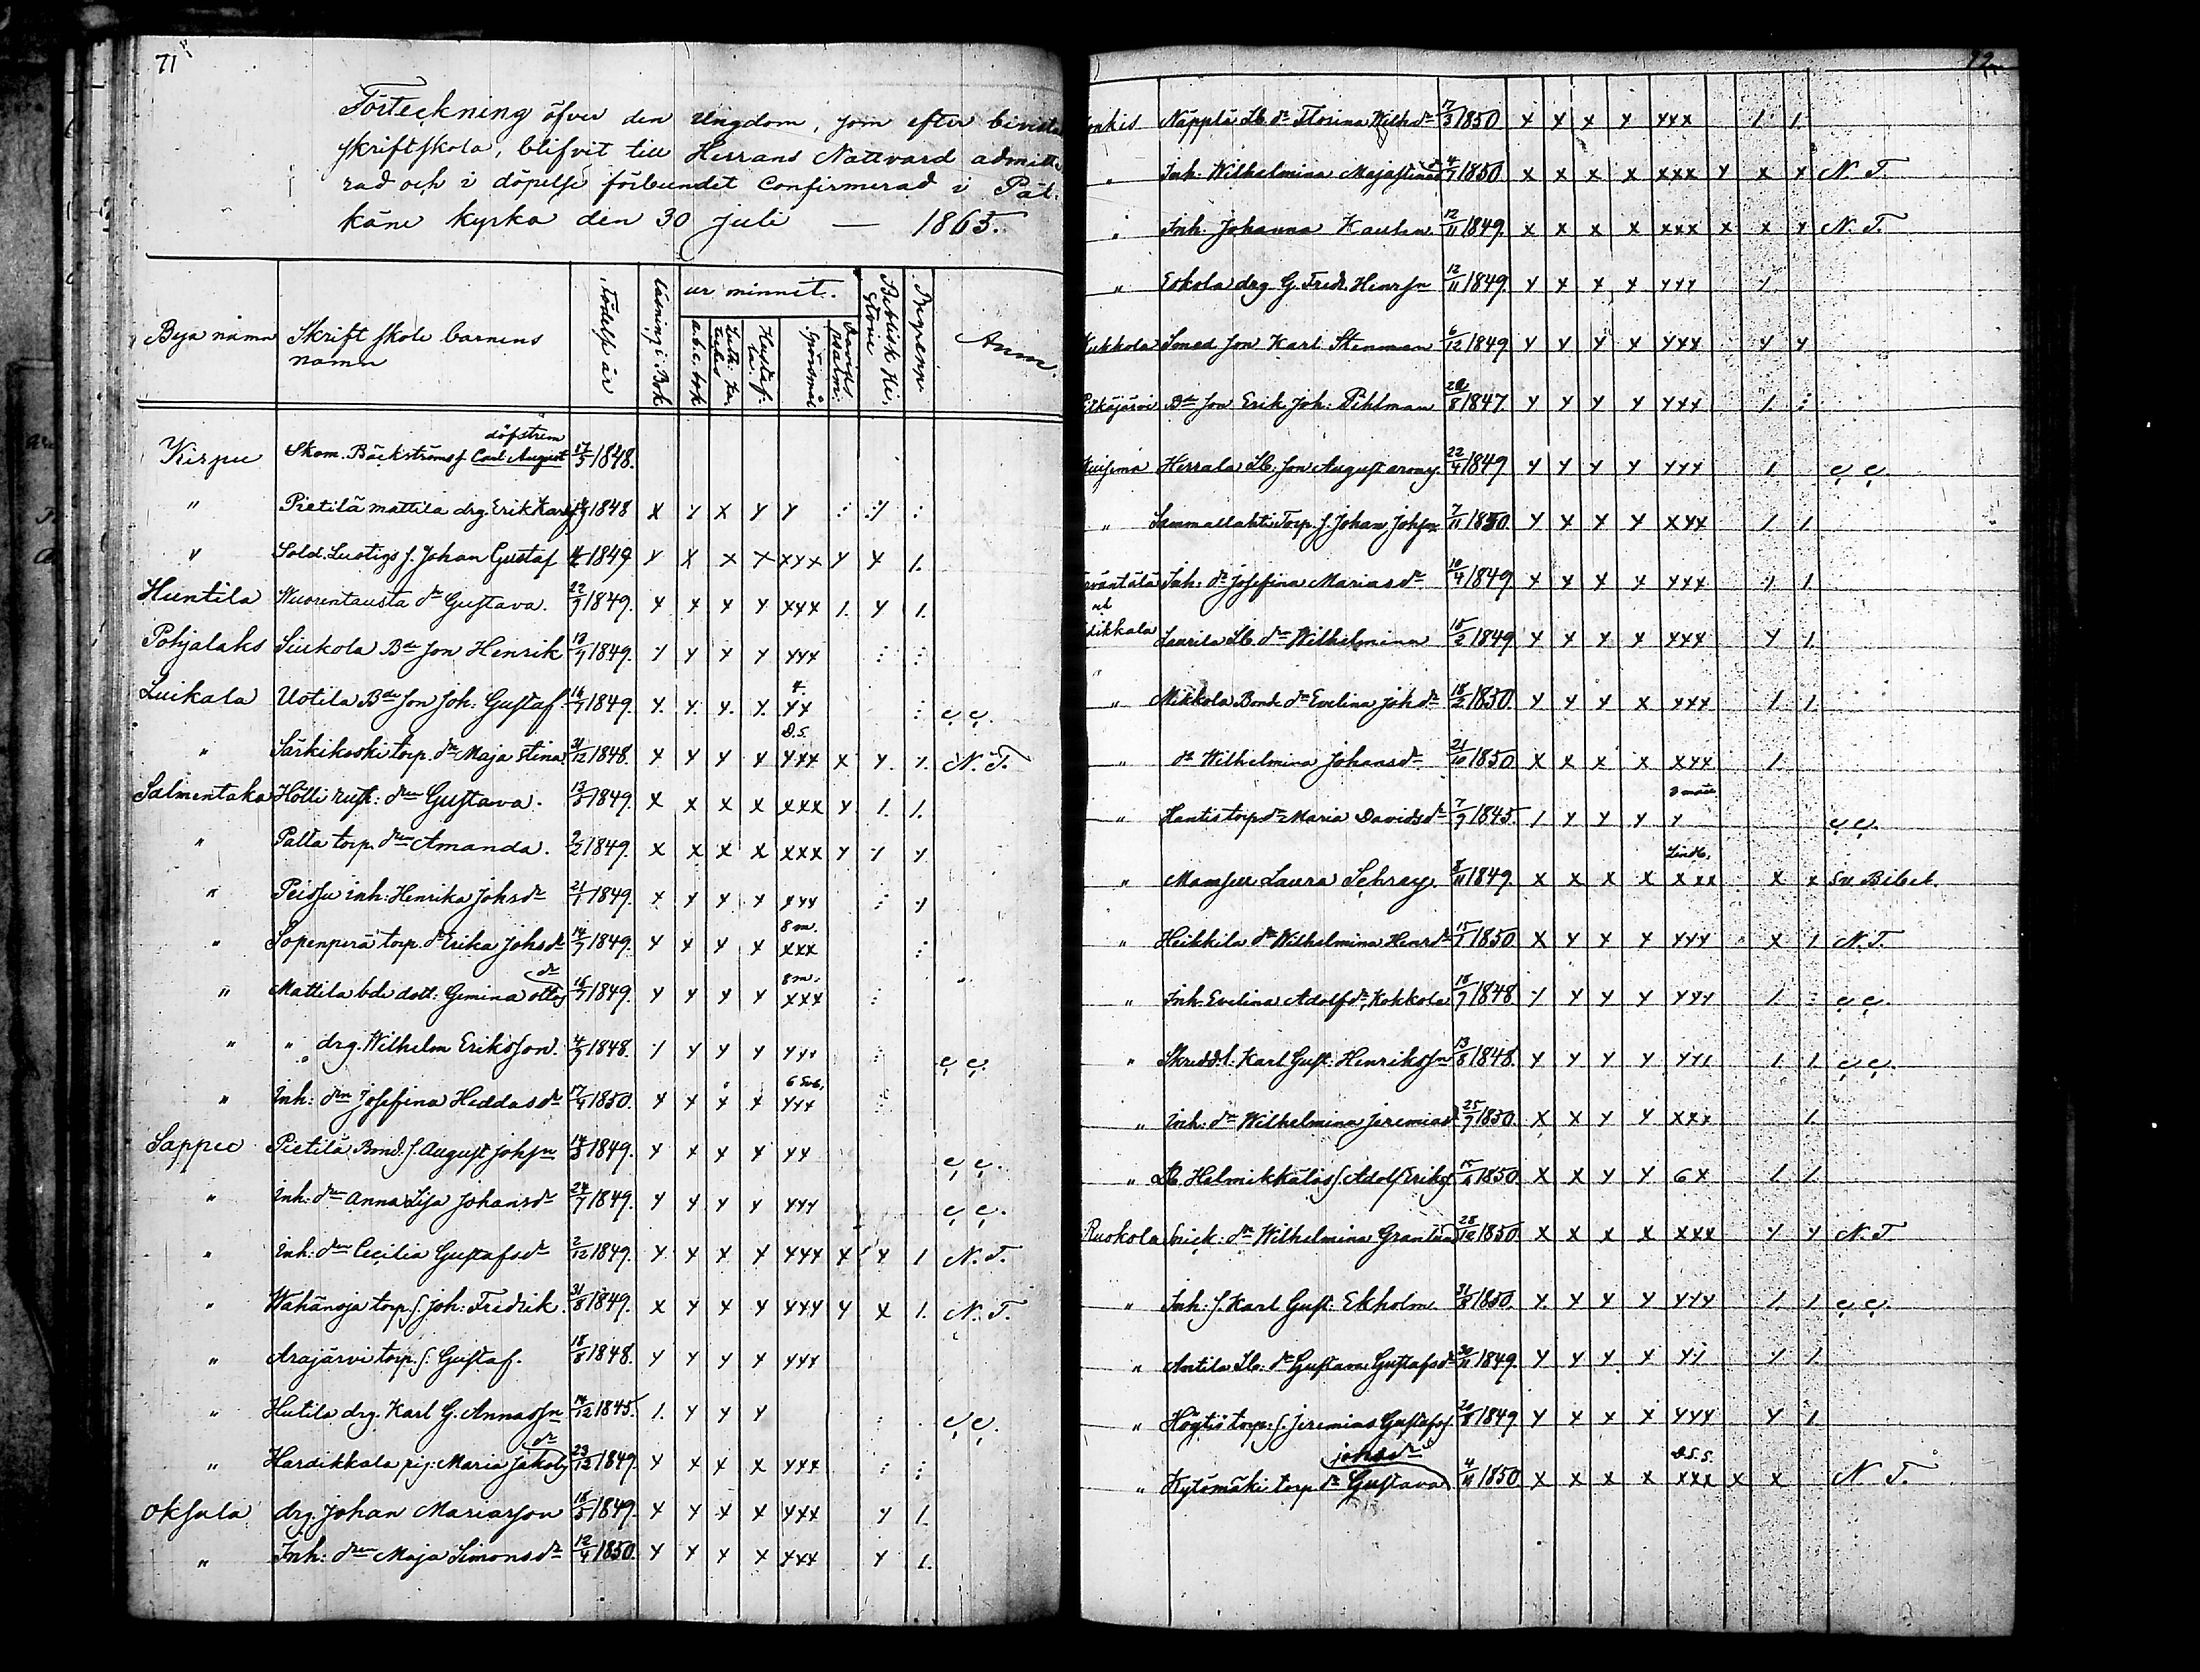 71
Förteckning öfver den Ungdom, som efter bevista
skriftskola, blifvit till Herrans Nattvard admitte
rad och i döpelse förbundet Confirmerad i Päl-
käne kyrka den 30 juli — 1865.
Bya namn Skrift skole barnens namn Födelse år läsning i Bok ur minnet. a.b.c. bok Luth. Kat. Hustaf: la. Spörsmål Davids psalm. Biblisk Hi storie Begrepp. Anm.
döpstrem
Kirpu Skom. Bäckströms s. Carl August 17/5 1848.
" Pietilä mattila drg. Erik Karls 1848 x y x y y : :/ :
" Sold. Lustigs s. Johan Gustaf 1849 y x x x xxx y x /.
Huntila Wuorentausta dr Gustava. 22/9 1849. x x x y xxx /. y /.
Pohjalaks Siukola Bde son Henrik 1849. y y y y yyy : :
Luikala Uotila Bde son Joh: Gustaf. 1849. y. y. y. y. yy : c c.
4.
" Särkikoski torp. dr Maja Stina 31/12 1848. x y y y yyy x y. /. N. T.
D.S.
Salmentaka Hölli rust: dren Gustava. 1849. x x x x xxx y /. /.
" Palta torp. dren Amanda. 1849. x x x x xxx y y y
" Peidsu inh: Henrika Johsdr 21/1 1849. x y y y xyy : y
" Sopenperä torp. dr Erika Johsdr 14/7 1849. y x x x xxx :
8 m.
" Mattila bde dott: Gemina Ottos dr 1849. y y y y xxx :
8 m.
" " drg. Wilhelm Eriksson. 1848. y y y y yyy : c c.
" Inh: dren Josefina Heddasdr 17/4 1850. y y y x yyy :
Sappee Pietilä Bond. s. August Johsn 1849. y x y y yy c c.
" Inh: dren Anna Lisa Johansdr 24/7 1849. y y y y yyy c c.
" Inh: dren Cecilia Gustafsdr 2/12 1849. y y y y yyy x y / N. T.
" Wahänoja torp. s. Joh: Fredrik. 31/8 1849. x x x y yyy y x /. N. T.
" Arajärvi torp. s. Gustaf. 18/8 1848. y y y y yyy
" Hutila drg. Karl G. Annassn 14/12 1845. /. y y y c c.
" Hardikkala pig: Maria Jakobs dr 23/12 1849. y x x x yyy : :
Oksala drg. Johan Mariasson 18/5 1849. y y x x yyy y /.
" Inh: dren Maja Simonsdr 12/4 1850. y y y x yyy y /.
onkis Näppilä Lb. dr Florina Wilhdr 17/3 1850 x y x y yyx / /.
" Inh. Wilhelmina Majastinas dr 1850. x x x x xxx y x x N. T.
" Inh. Johanna 12/11 1849. x x x x xxx x x y N. T.
" Eskola drg G. Fredr. Henrsn 12/11 1849. y x x y yyy y
ukkola Smed son Karl Stenman 6/12 1849 y y y y yyy y y
itkäjärvi Bde son Erik Joh: Pihlman 1847. y y y y yyy /. :
uisema Herrala Lb. son August 22/4 1849 y y y y yyy / c c
" Sammallahti Torp. s. Johan Johsn 7/11 1850. y x y y xyx / /
väntälä Inh: dr Josefina Mariasdr 10/4 1849 x x x x xxx y /.
dikkala Laurila Lb. dren Wilhelmina 15/2 1849 y y y y xxx y /.
" Mikkola Bond. dr Evelina Johdr 18/2 1850. y y y x yyy / /.
" dr Wilhelmina Johansdr 21/10 1850 x x x x xyx /.
" Hantis torp. dr Maria Davidsdr 7/9 1845. / y y y y c c.
" Mamsell Laura Schray. 8/11 1849. x x x x xxx x x Sv Bibel.
Lindb.
" Heikkilä dr Wilhelmina Henrdr 1850 x y x x yyy x / N. T.
" Inh. Evelina Adolfdr Kokkola 18/9 1848 y y y y yyy / : c c.
" Skredd. l. Karl Gust: Henrikssn 13/8 1848. y y y y yyy / / c c.
" Inh: dr Wilhelmina Jeremiad 25/9 1850. x x y y xxx /.
" Lb. Helmikkälä s. Adolf Eriks 1850 x x y y 6x / /.
Ruokola dr Wilhelmina 28/12 1850. x x x x xxx y y N. T.
" Inh: s. Karl Gust: Ekholm 31/8 1850. y. y y y yyy /. / c c.
" Antila Lb: dr Gustava Gustafsdr 30/11 1849. y y y x yy y /
" Högtis torp: s. Jeremias Gustafss 20/8 1849 y x x x yyy y /
johsdr
" Kytömäki torp. dr Gustava 4/11 1850. x x x x xxx x x N. T.
D.S.S.